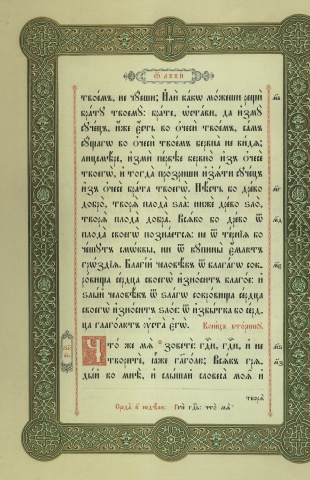 Ѿ ЛꙊКИ
твоемъ, не чꙋеши; Илѝ ка́кѡ мо́жеши рещѝ
бра́тꙋ твоемꙋ̀: бра́те, ѡ҆ста́ви, да и҆змꙋ̀
сꙋче́цъ, и҆́же є҆́сть во ѻ҆чесѝ твое́мъ, са́мъ
сꙋ́щагѡ во ѻ҆чесѝ твое́мъ бервна̀ не ви́дѧ;
лицемѣ́ре, и҆змѝ пе́рвѣе бервно̀ и҆з̾ ѻ҆чесѐ
твоегѡ̀, и҆ тогда̀ про́зриши и҆з̾ѧ́ти сꙋче́цъ
и҆з̾ ѻ҆чесѐ бра́та твоегѡ̀. Нѣ́сть бо дре́во
добро̀, творѧ̀ плода̀ ѕла̀: нижѐ дре́во ѕло̀,
творѧ̀ плода̀ добра̀. Всѧ́ко бо дре́во ѿ
плода̀ своегѡ̀ познае́тсѧ: не ѿ те́рнїѧ бо
че́шꙋтъ смѡ́квы, ни ѿ кꙋпины̀ є҆́млютъ
гро́здїѧ. Благі́й человѣ́къ ѿ благагѡ сок-
ро́вища се́рдца своегѡ̀ и҆зно́ситъ благо́е: и҆
ѕлы́й человѣ́къ ѿ ѕла́гѡ сокро́вища се́рдца
своегѡ̀ и҆зно́ситъ ѕло́е: ѿ и҆збы́тка бо се́рд-
ца глаго́лютъ ᲂу҆ста̀ є҆гѡ̀. Коне́цъ вто́рникꙋ.
Что́ же мѧ̀ зове́те: гдⷭ҇и, гдⷭ҇и, и҆ не
творитѐ, ꙗ҆̀же гл҃го́лю; Всѧ́къ грѧ-
ды́й ко мнѣ̀, и҆ слы́шай словеса̀ моѧ̑ и҆
творѧ̀